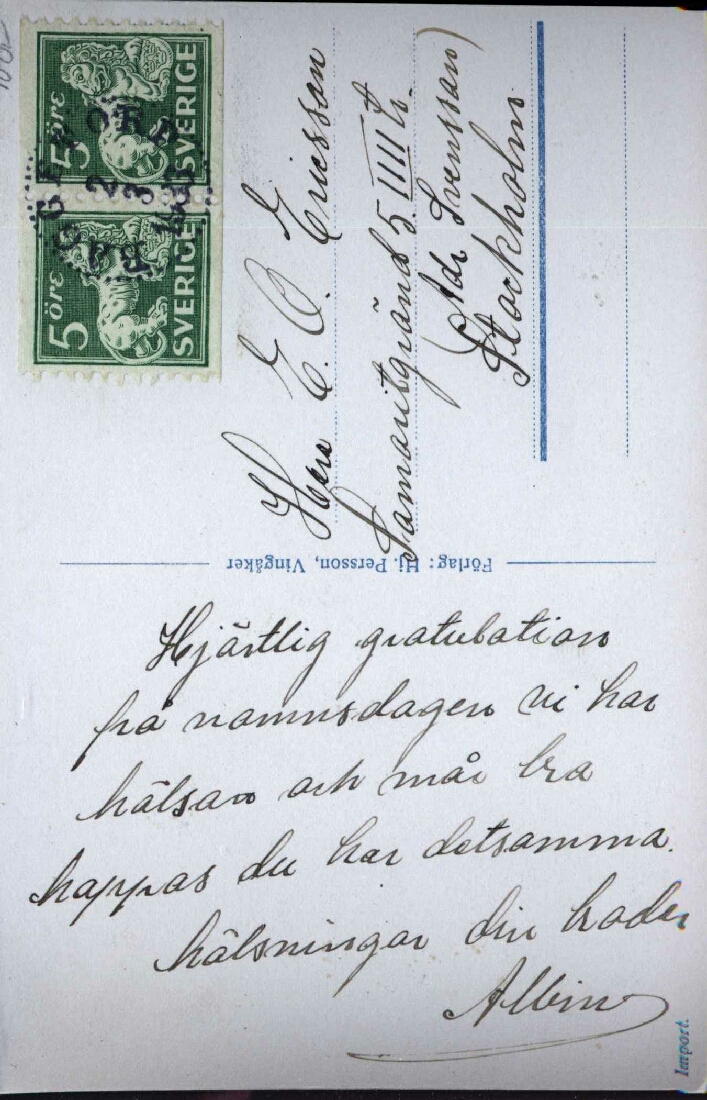 5 ÖRE SVERIGE
5 ÖRE SVERIGE
Herr E. O. Ericsson
Samaritgränd 5 IIII tr.
(Adr Svensson)
Stockholm
Förlag: Hj. Persson, Vingåker
Hjärtlig gratulation
på namnsdagen vi har
hälsan och mår bra
hoppas du har detsamma.
hälsningar din broder
Albin
Import.